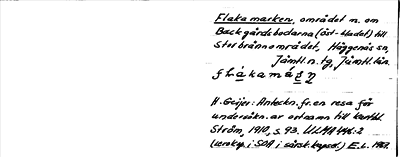 Flaka marken, området n. om
Backgårdsbodarna (Öst-bladet) till
Storbrännområdet, Häggenås sn,
Jämtl. n. tg, Jämtl. län.
H. Geijer: Anteckn. fr. en resa för
undersökn. av ortnamn till kartbl.
Ström, 1910, s. 93. ULMA 446:2
(xerokop. i SOA i särsk. kapsel.) E.L. 1968.